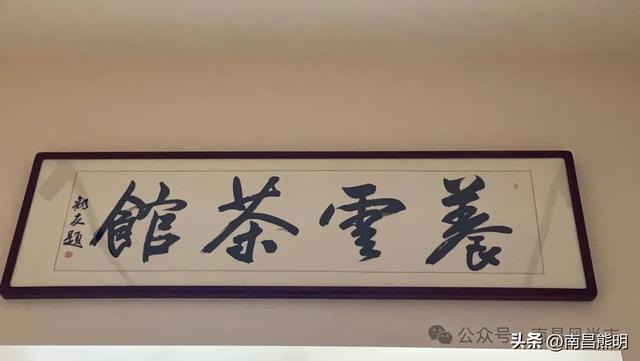 養雲茶館
題
公众号
头条@南昌熊明